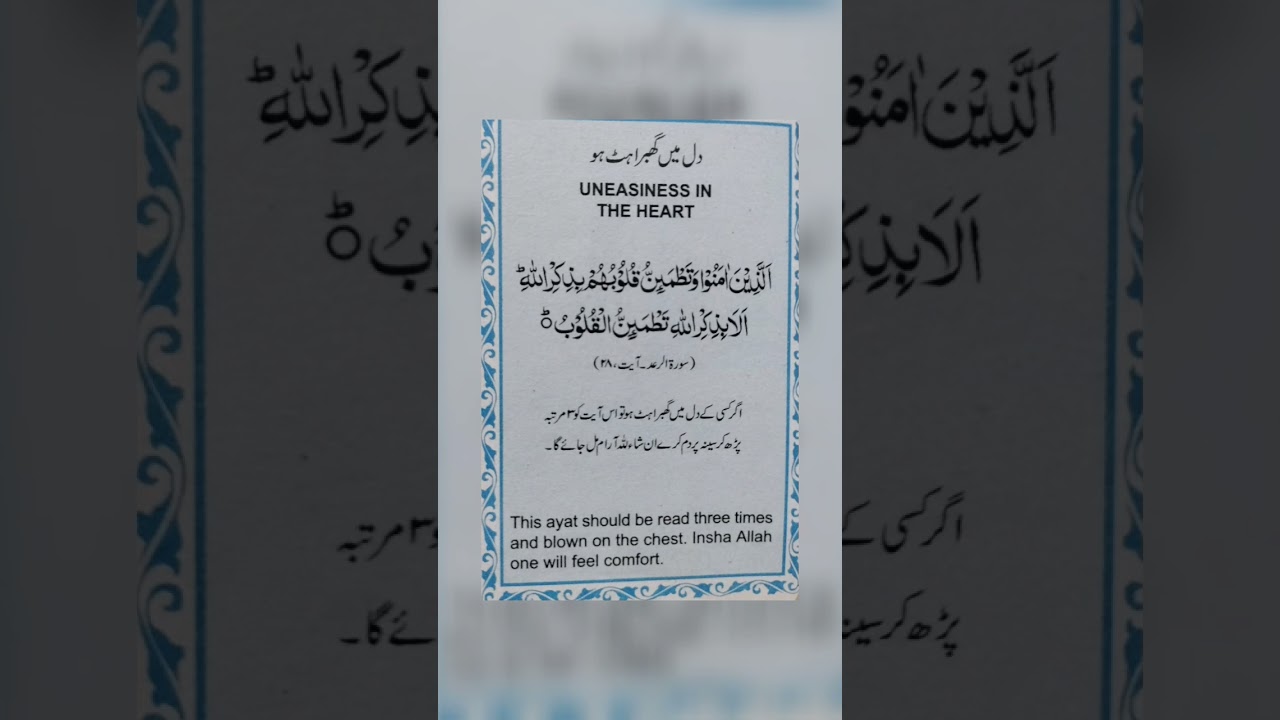 دل میں گھبراہٹ ہو
UNEASINESS IN
THE HEART
اَلَّذِيْنَ اٰمَنُوْا وَتَطْمَئِنُّ قُلُوْبُهُمْ بِذِكْرِ اللهِ ؕ
اَلَا بِذِكْرِ اللهِ تَطْمَئِنُّ الْقُلُوْبُ ○ؕ
(سورۃ الرعد۔ آیت، ۲۸)
اگر کسی کے دل میں گھبراہٹ ہو تو اس آیت کو ۳ مرتبہ
پڑھ کر سینہ پر دم کرے ان شاء للہ آرام مل جائے گا۔
This ayat should be read three times
and blown on the chest. Insha Allah
one will feel comfort.